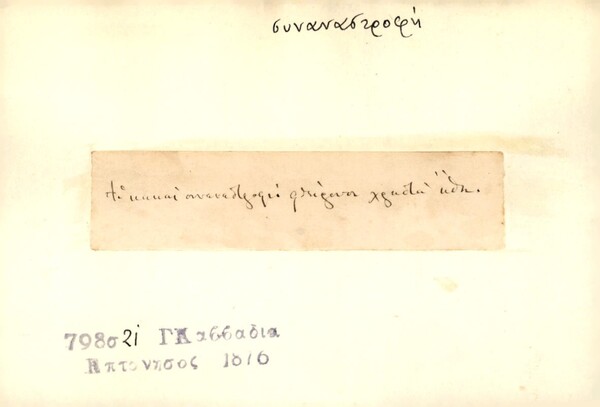 συναναστροφή
Αἱ κακαὶ συναναστροφαὶ φθείρουσι χρηστὰ ἤθη.
798σ 21 Γ Κασσαδια
Επτανησος 1876